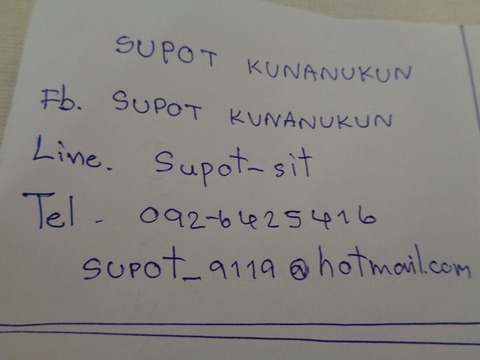 SUPOT KUNANUKUN
Fb. SUPOT KUNANUKUN
Line. Supot-sit
Tel - 092-6425416
SUPOT_9119@hotmail.com